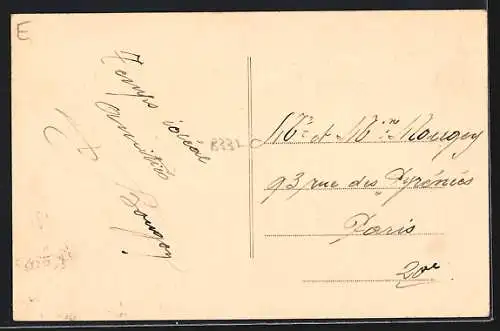 E
Temps idéal
Amitiés
Bougoy
8331
Mr et Mme Mougey
93 rue des Pyrénées
Paris
20e